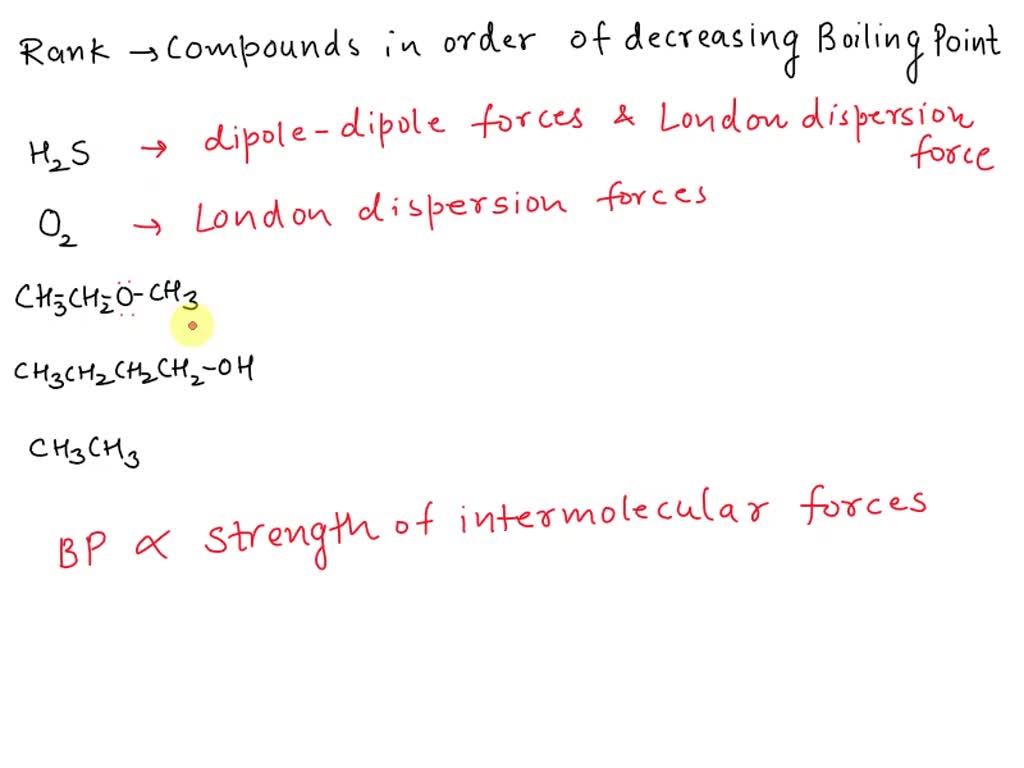 Rank → Compounds in order of decreasing Boiling Point
H₂S → dipole-dipole forces & London dispersion force
O₂ → London dispersion forces
CH₃-CH₂-O-CH₃
CH₃CH₂CH₂CH₂-OH
CH₃CH₃
BP ∝ strength of intermolecular forces